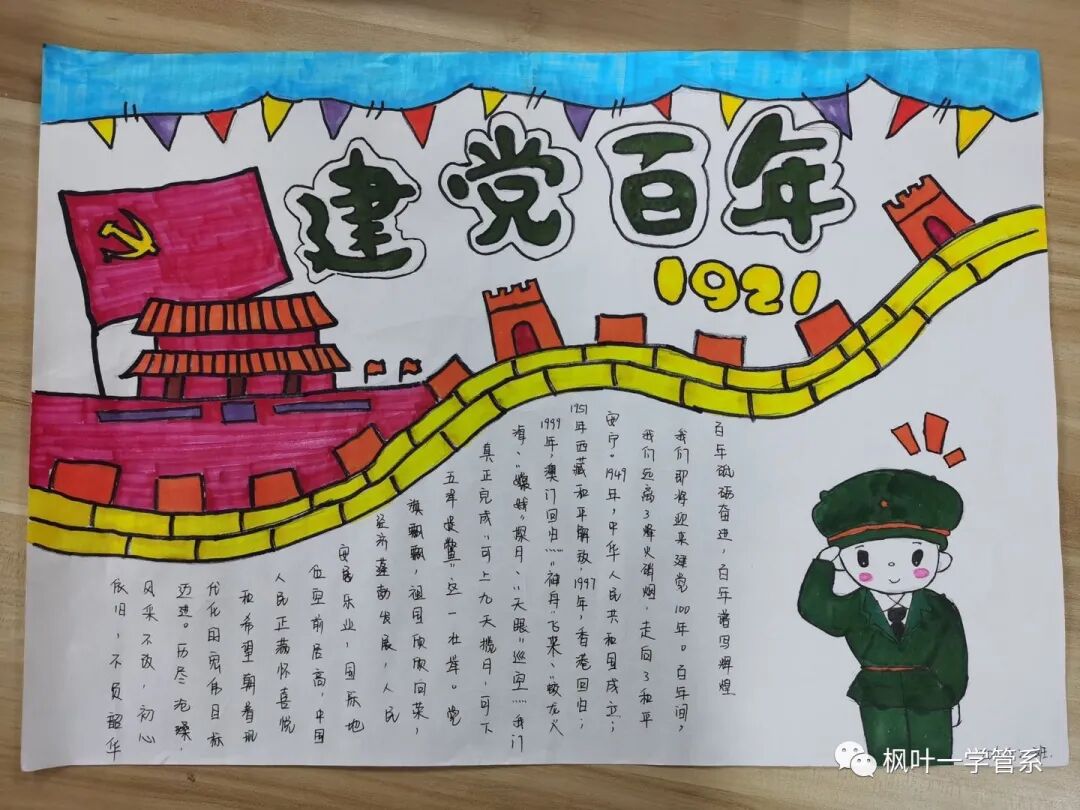 建党百年
1921
百年砥砺奋进，百年谱写辉煌
我们即将迎来建党100年。百年间，
我们远离了烽火硝烟，走向了和平
安宁。1949年，中华人民共和国成立；
1951年西藏和平解放，1997年，香港回归；
1999年，澳门回归……“神舟”飞来、“蛟龙”入
海、“嫦娥”探月、“天眼”巡空……我们
真正完成“可上九天揽月，可下
五洋捉鳖”这一壮举。党
旗飘飘，祖国欣欣向荣，
经济蓬勃发展，人民
安居乐业，国际地
位空前居高，中国
人民正满怀喜悦
和希望朝着现
代化国家伟目标
迈进。历尽沧桑，
风采不改，初心
依旧，不负韶华
班.
枫叶一学管系